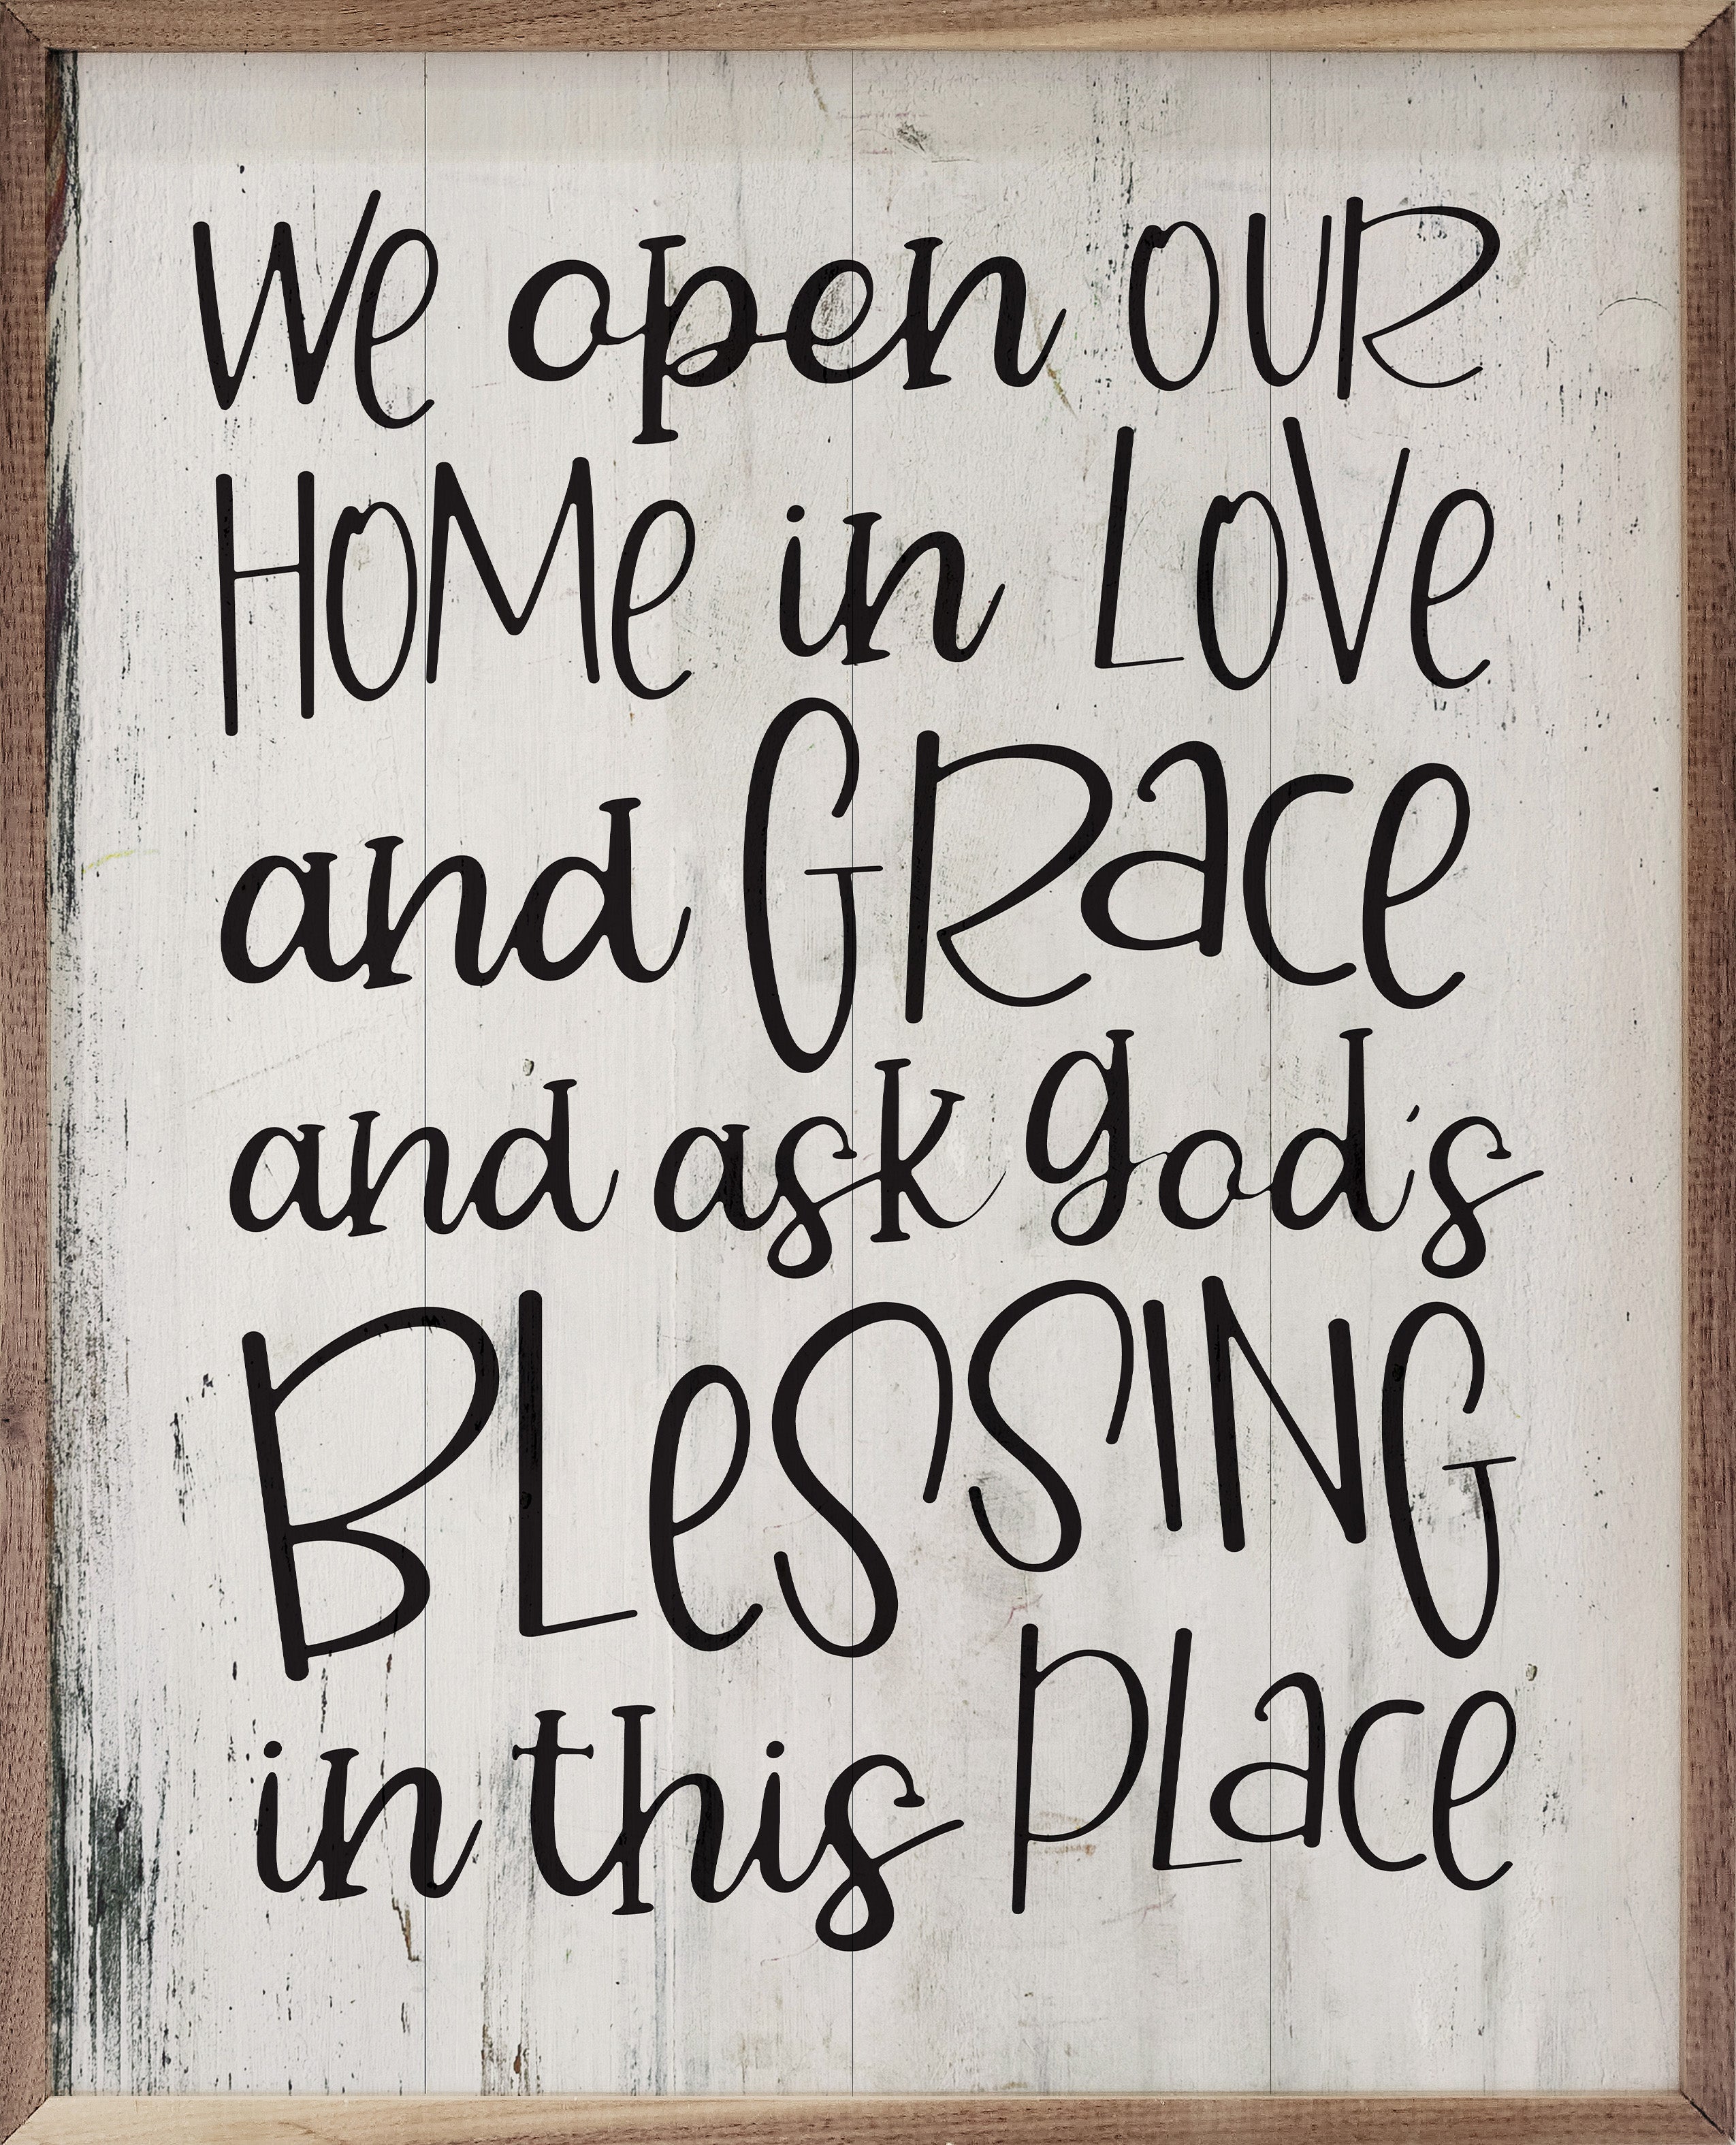 We open OUR
HOMe in LOVe
and GRace
and ask god's
BLeSSING
in this PLace